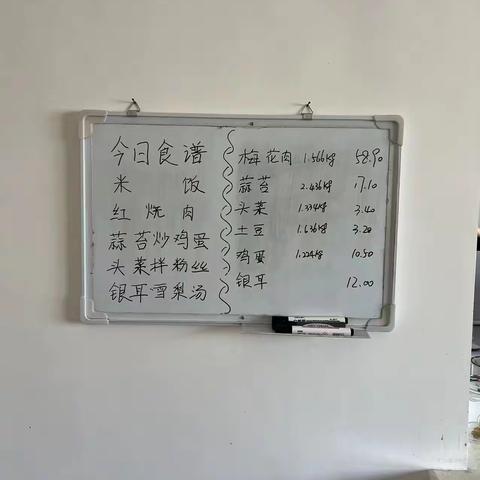 今日食谱
米 饭
红烧肉
蒜苔炒鸡蛋
头菜拌粉丝
银耳雪梨汤
梅花肉 1.566kg 58.90
蒜苔 2.436kg 17.10
头菜 1.334kg 3.40
土豆 1.636kg 3.20
鸡蛋 1.224kg 10.50
银耳 12.00